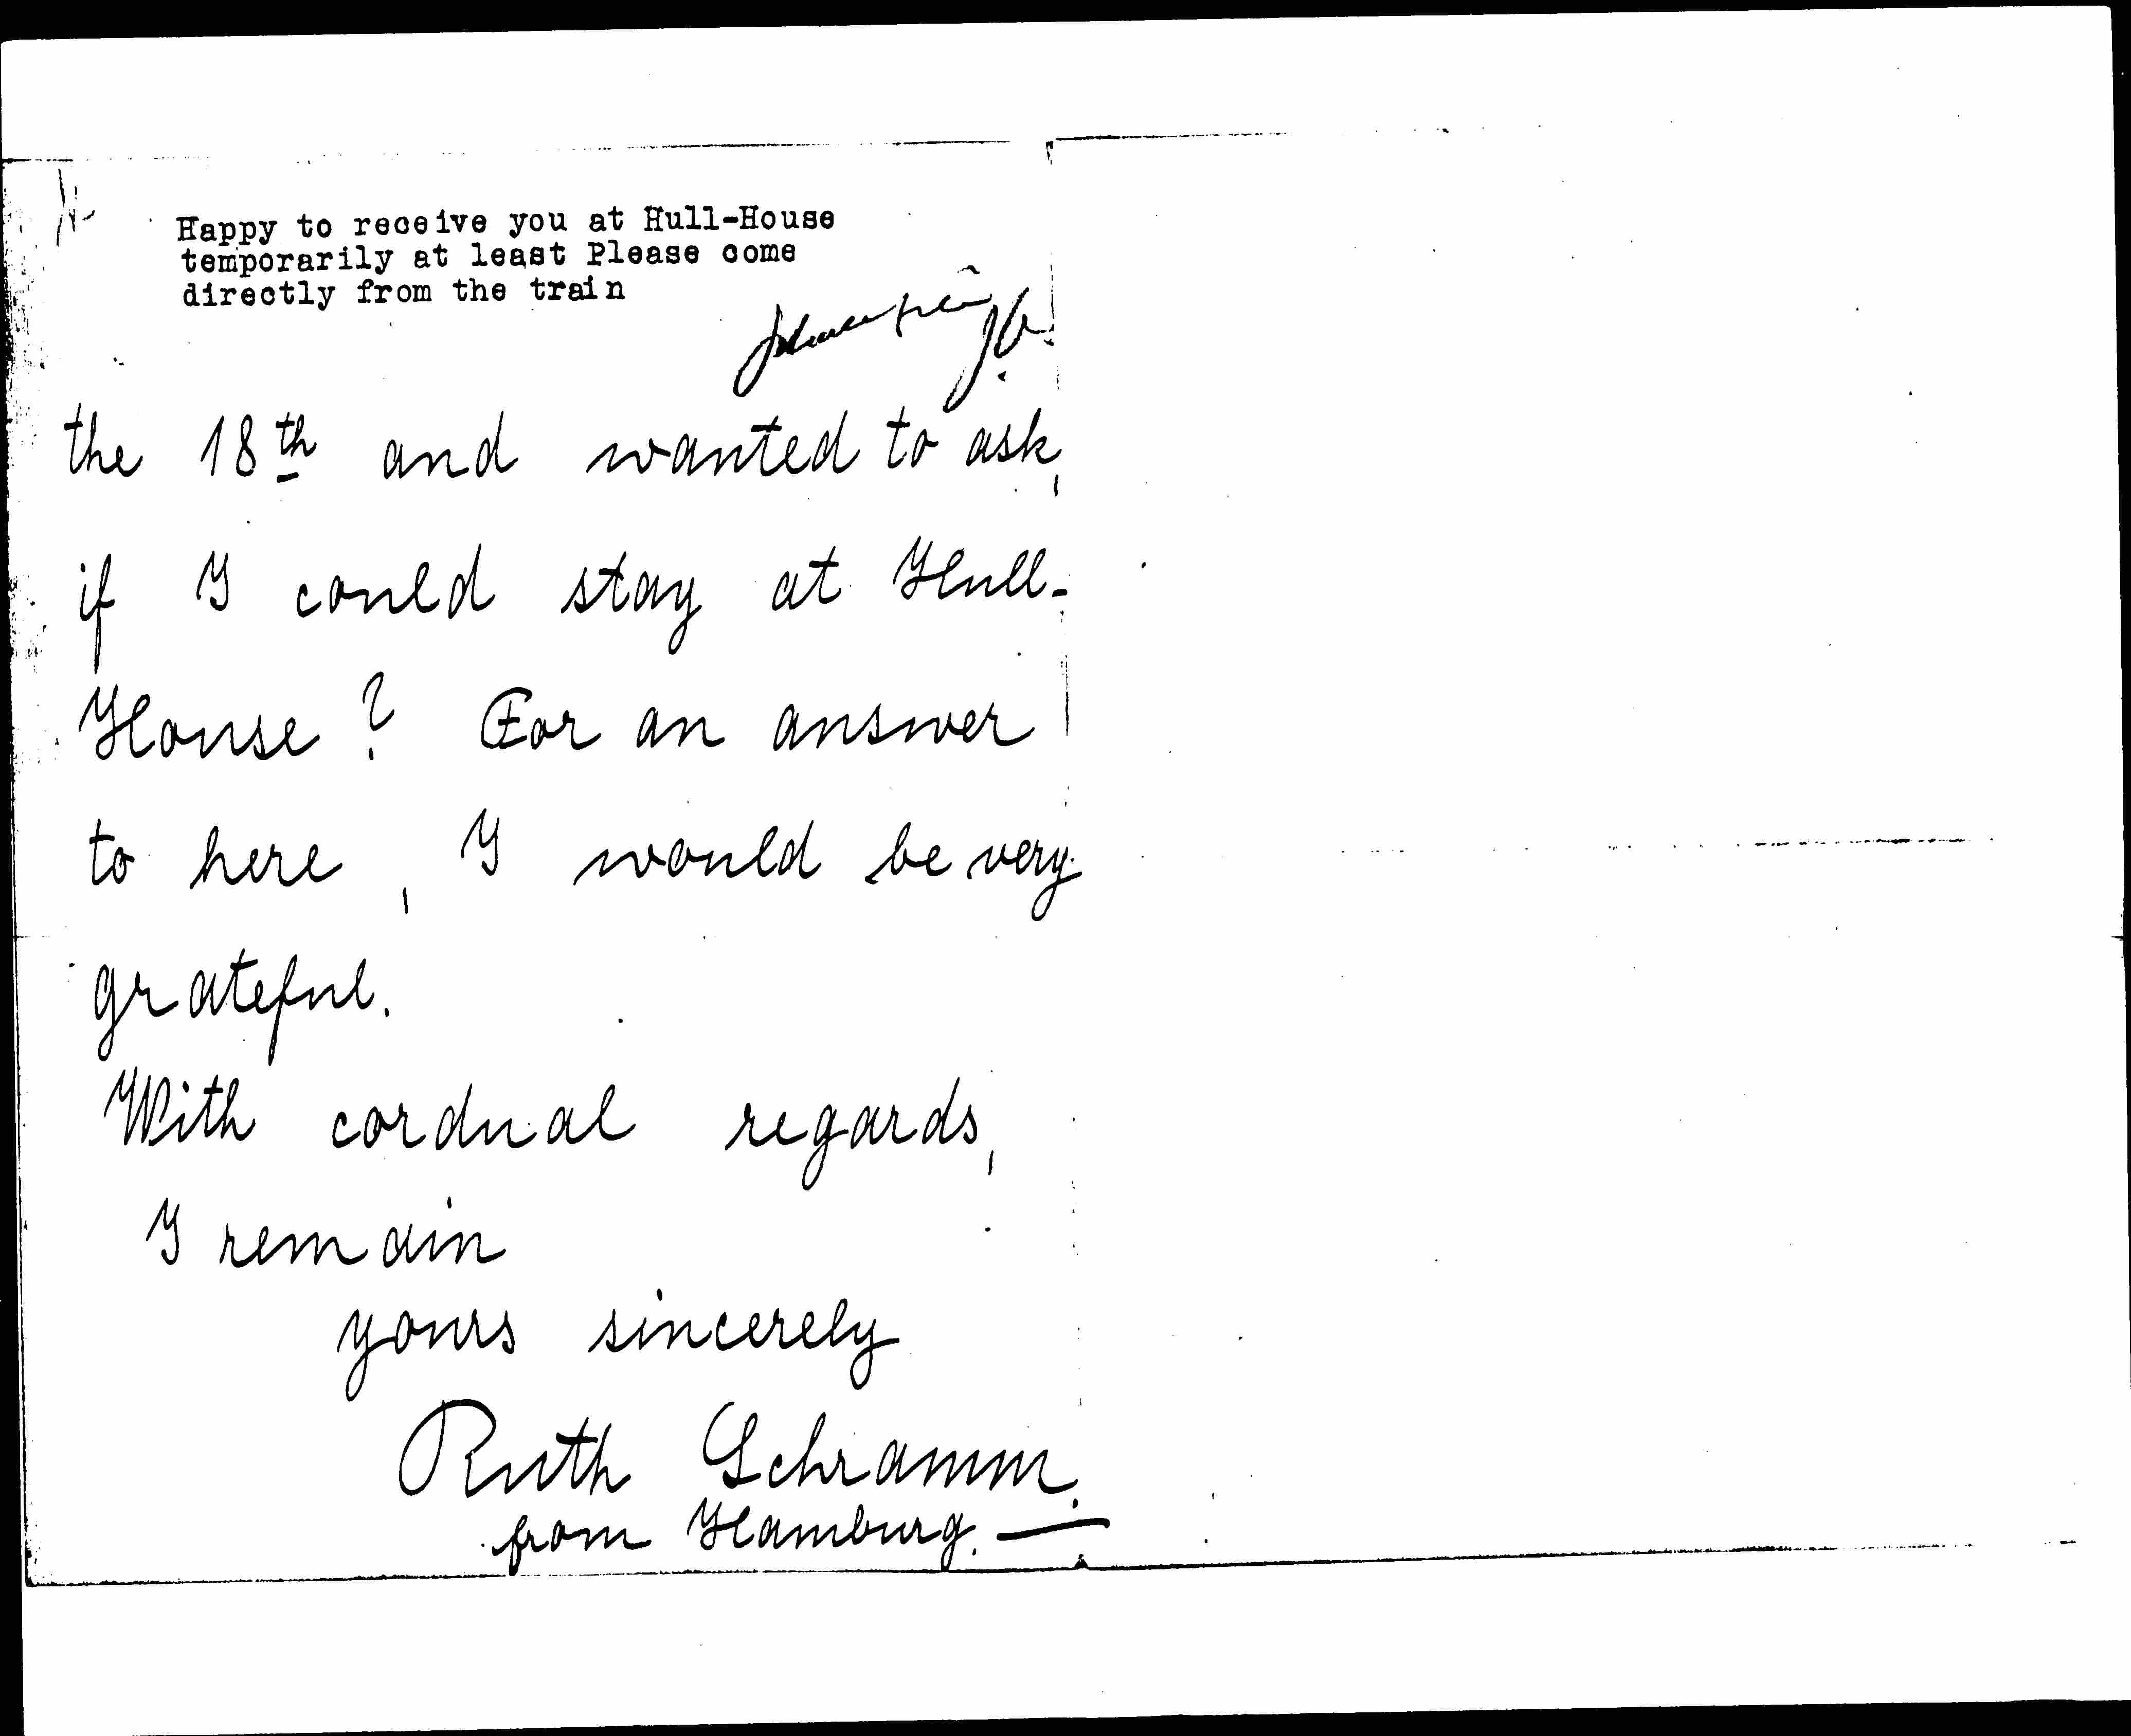 Happy to receive you at Hull-House
temporarily at least Please come
directly from the train
the 18th and wanted to ask,
if I could stay at Hull-
House ? For an answer
to here , I would be very
grateful.
With cordual regards,
I remain
yours sincerely
Ruth Schramm.
from Hamburg. —